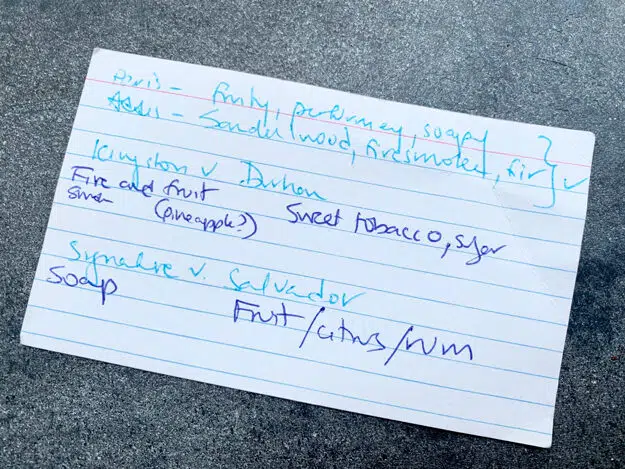 Paris – fruity, perfumey, soapy
– Sandalwood, firesmoke, fir
Kingston v. Durham
Fire and fruit
(pineapple?) Sweet tobacco, sugar
v. Salvador
Soap
Fruit/citrus/rum